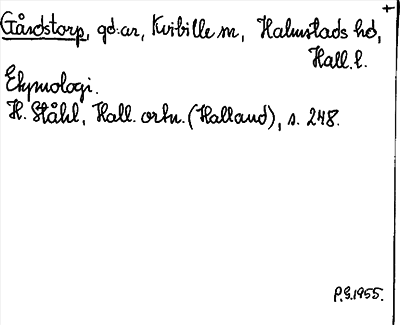 +
Gårdstorp, gd.ar, Kvibille sn, Halmstads hd,
Hall. l.
Etymologi.
H. Ståhl, Hall. ortn. (Halland), s. 248.
P.G.1955.